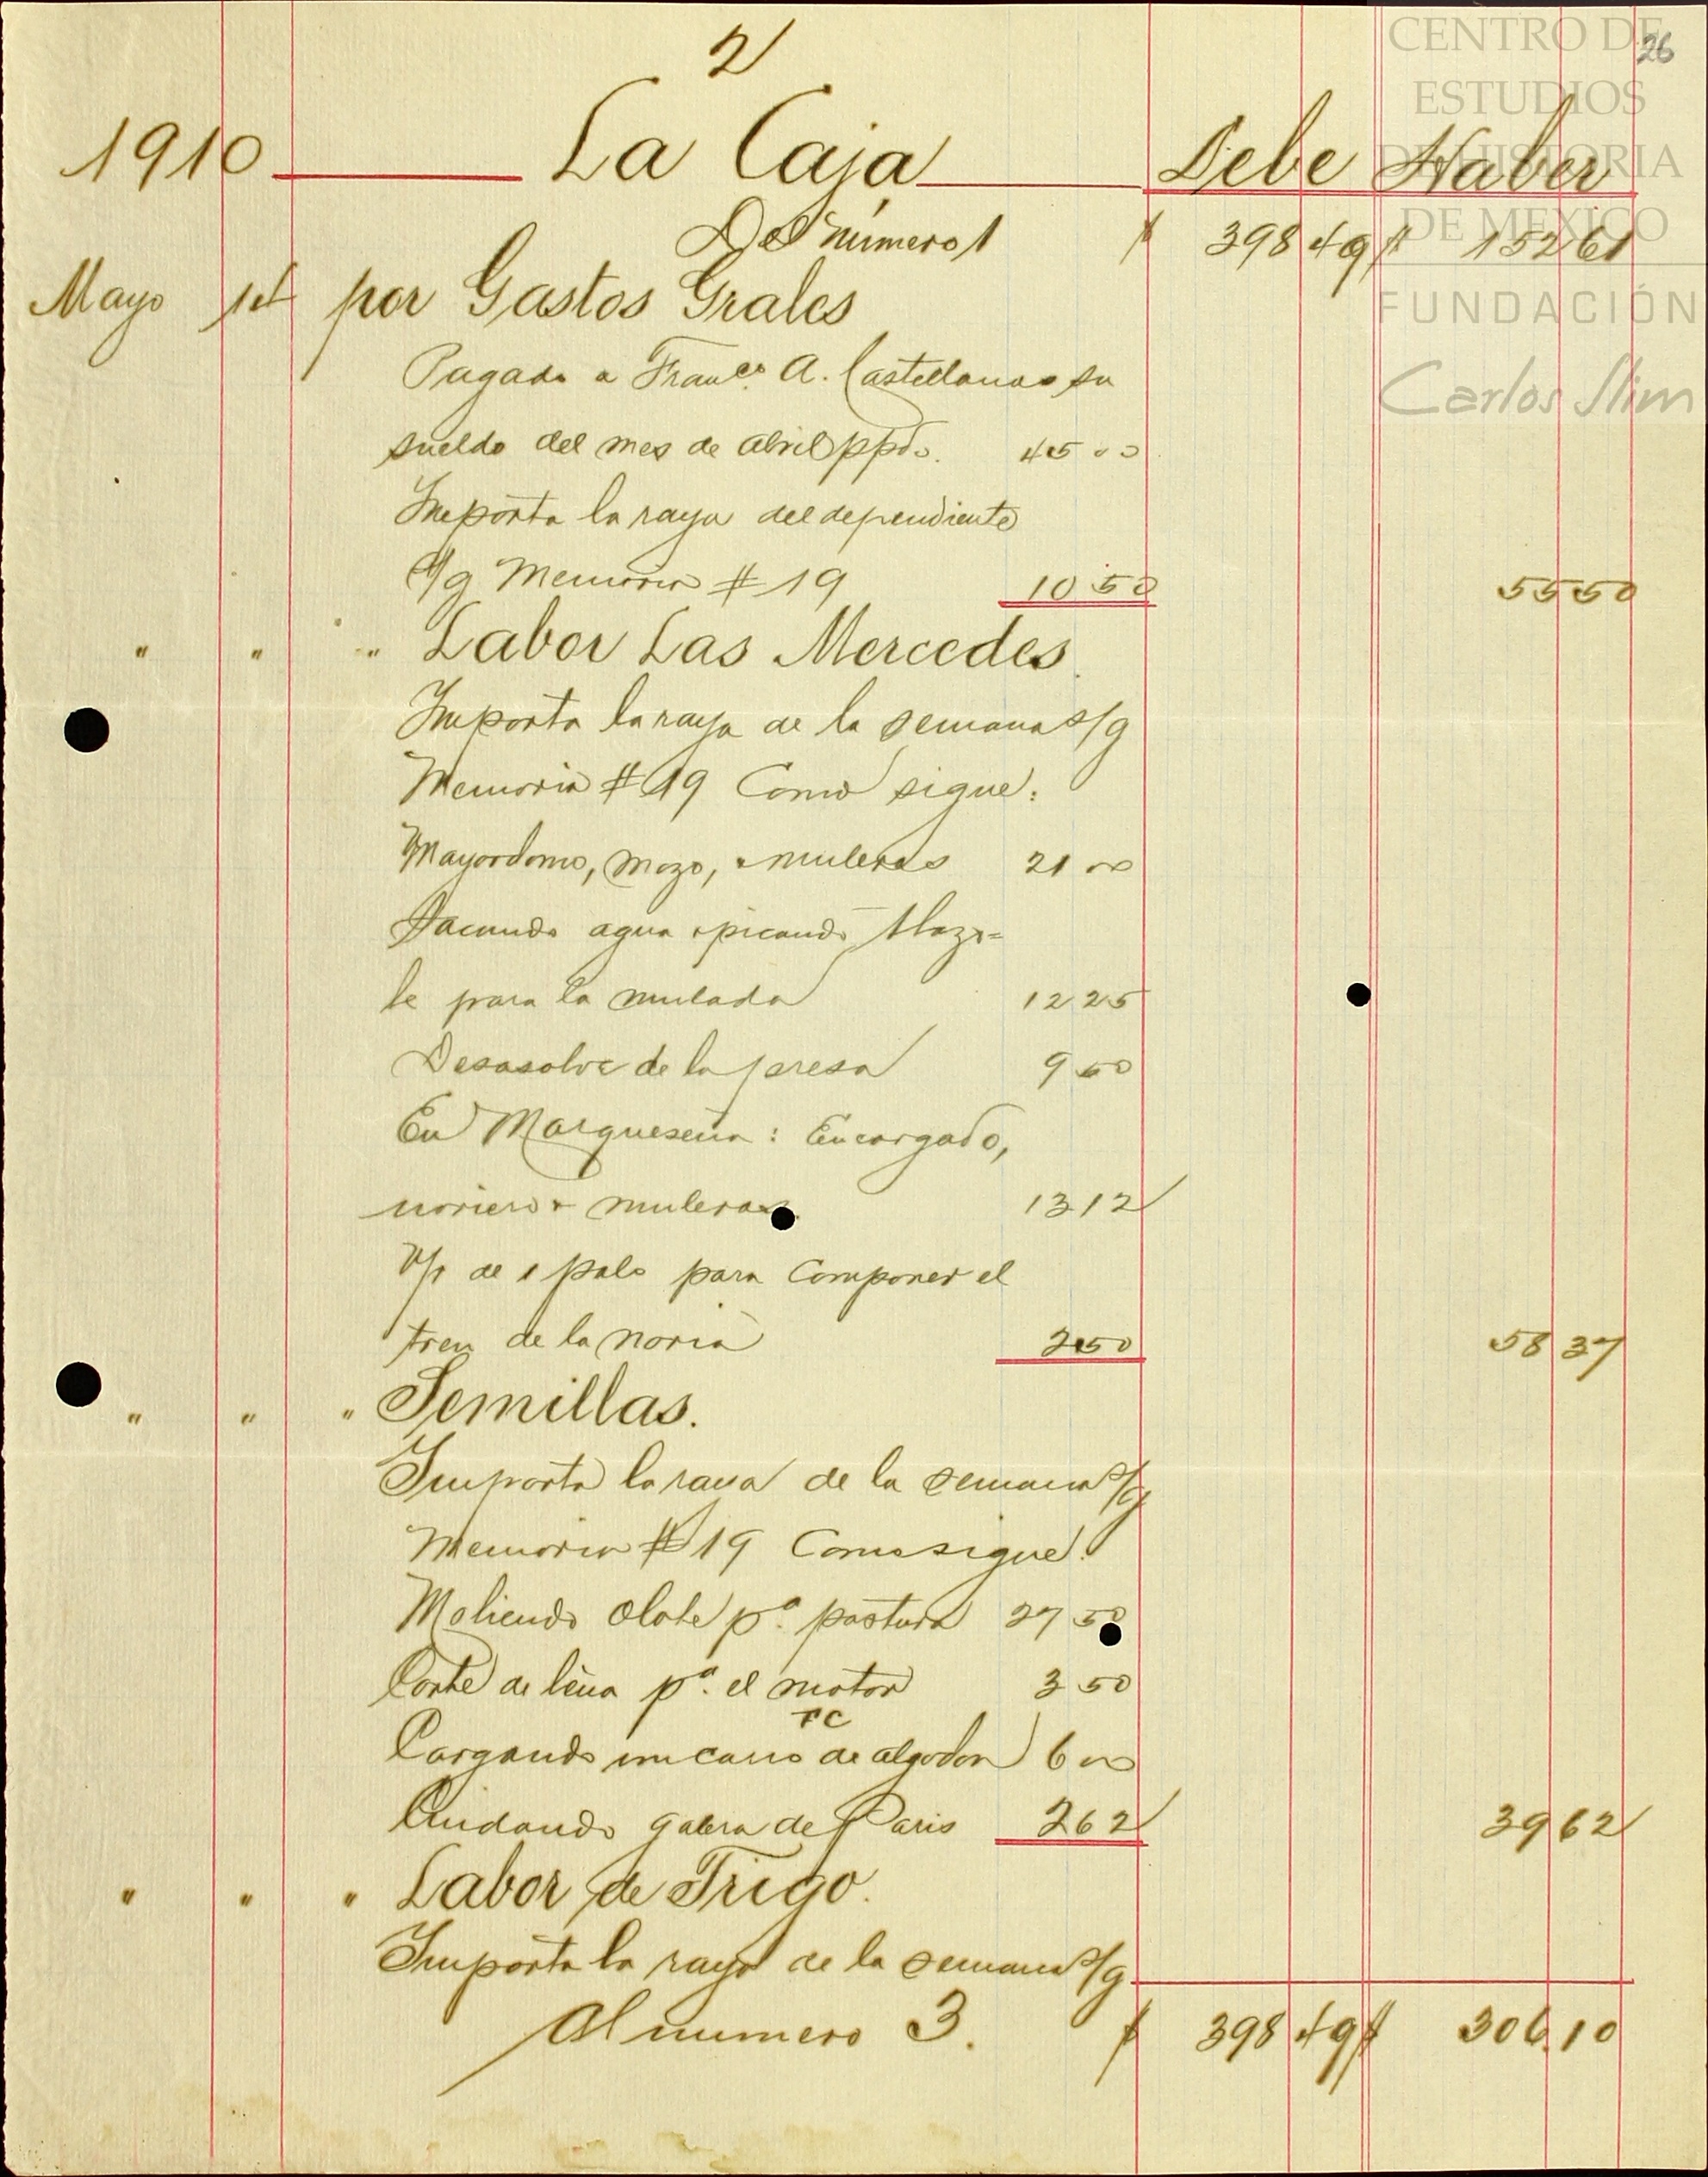 2
26
CENTRO DE
ESTUDIOS
DE HISTORIA
DE MEXICO
FUNDACIÓN
Carlos Slim
1910 La Caja Debe Haber
Del número 1 $ 398 49 $ 152 61
Mayo 1st por Gastos Grales
Pagado a Franco. A. Castellanos su
sueldo del mes de abril ppdo. 45 00
Importa la raya del dependiente
s/g Memoria # 19 10 50 55 50
" " " Labor Las Mercedes.
Importa la raya de la semana s/g
Memoria # 19 Como sigue:
Mayordomo, mozo, muleros 21 00
Sacando agua picando tlazo=
le para la mulada 12 25
Desasolve de la presa 9 50
En Marqueseña: Encargado,
noriero muleros. 13 12
V/r de 1 palo para Componer el
tren de la noria 2 50 58 37
" " " Semillas.
Importa la raya de la semana s/g
Memoria # 19 Como sigue:
Moliendo Olote pa. pastura 27 50
Corte de leña pa. el motor 3 50
FC
Cargando un carro de algodon 6 00
Cuidando galera de Paris 2 62 39 62
" " " Labor de Trigo.
Importa la raya de la semana s/g
Al numero 3. $ 398 49 $ 306.10